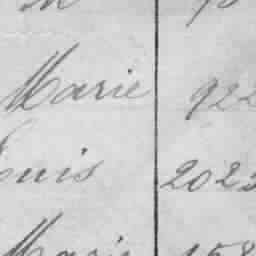 Marie 922
Louis 2023
Marie 158